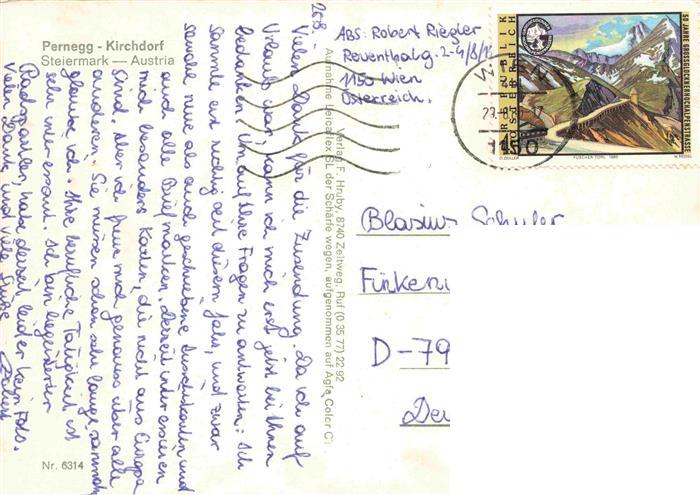 Pernegg - Kirchdorf
Steiermark — Austria
Vielen Dank für die Zusendung. Da ich auf
Urlaub war, kann ich mich erst jetzt bei Ihnen
bedanken. Um auf Ihre Fragen zu antworten: Ich
sammle erst richtig seit diesem Jahr, und zwar
sowohl neue als auch geschriebene Ansichtskarten und
auch alle Briefmarken. Derzeit interessieren
mich besonders Karten, die nicht aus Europa
sind. Aber ich freue mich genauso über alle
anderen. Sie müssen schon sehr lange sammeln
glaube ich. Ihre berufliche Tätigkeit ist
sehr interessant. Ich bin begeisterter
Radsportler, habe derzeit leider kein Foto.
Vielen Dank und viele Grüße
Robert
Nr. 6314
Verlag F. Hruby, 8740 Zeltweg, Ruf (0 35 77) 22 92
Aufnahme Leicaflex SL der Schärfe wegen, aufgenommen auf Agfa Color C
ABS: Robert Riegler
Reuenthalg. 2-4/8/
1150 Wien
Österreich.
REPUBLIK
ÖSTERREICH
50 JAHRE GROSSGLOCKNER HOCHALPENSTRASSE
FUSCHER TÖRL 1985
Blasius Schuler
Finken
D-79
De